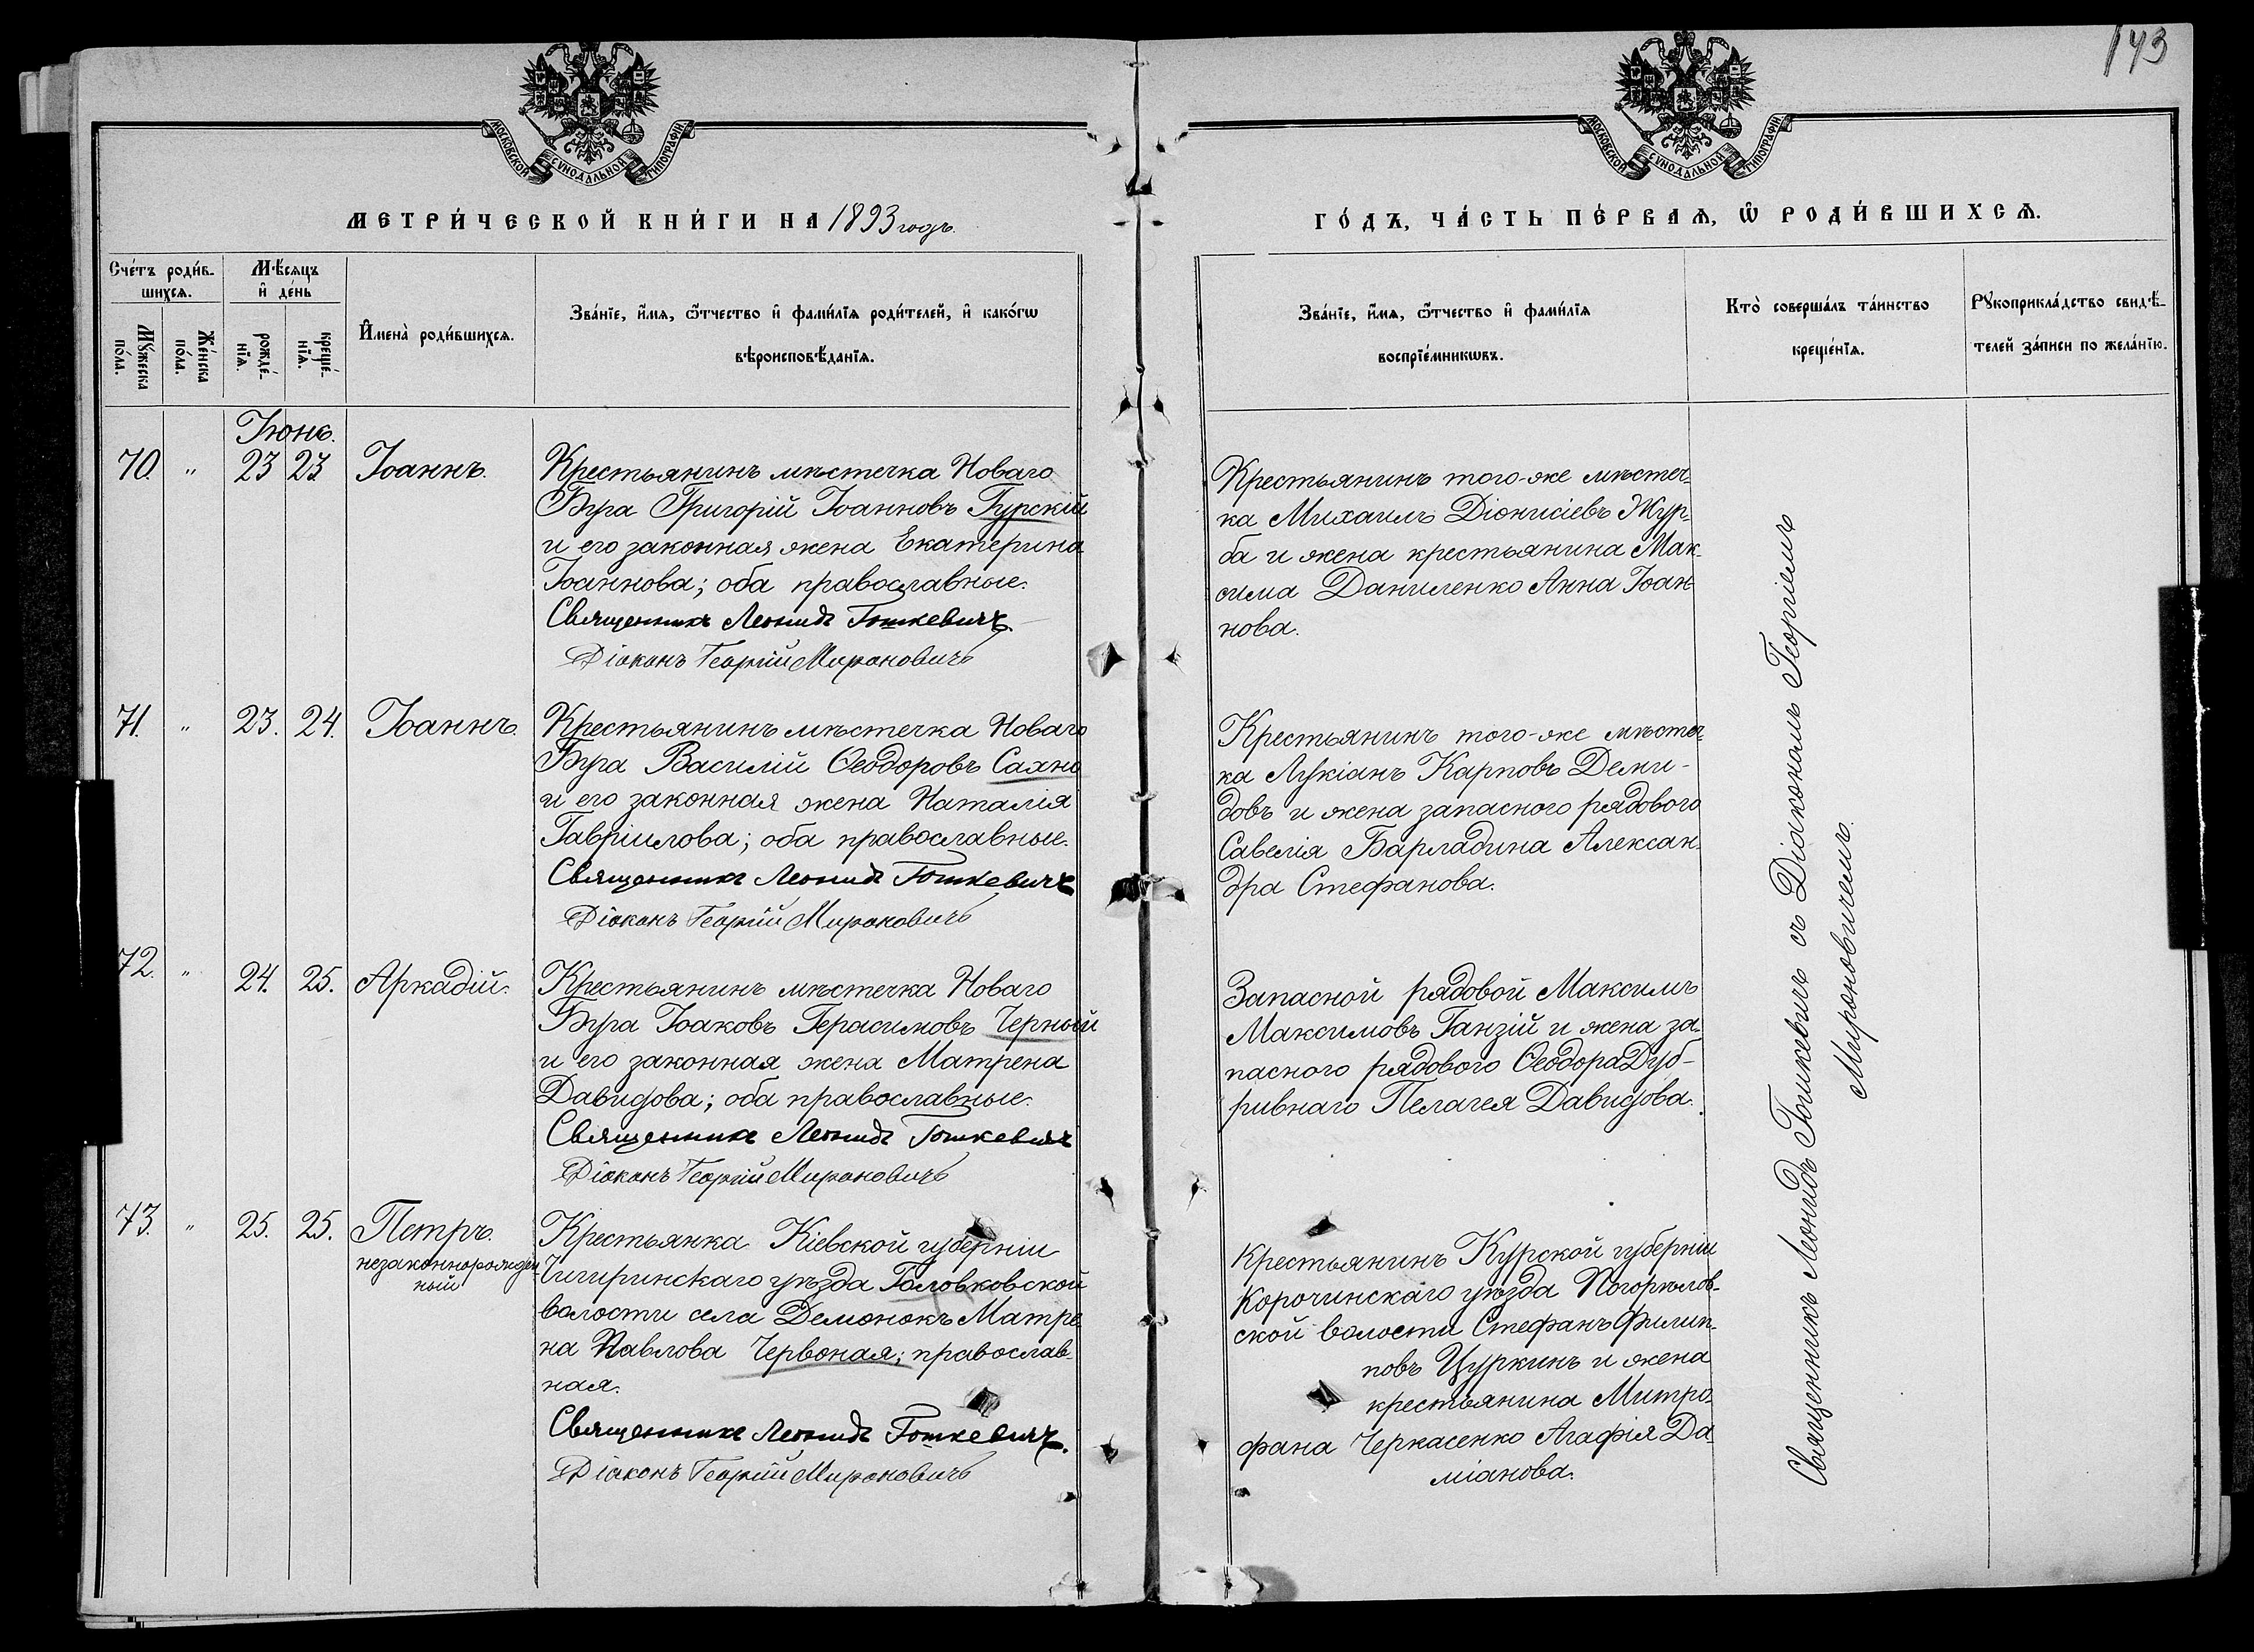 143
МОСКОВСКОЙ СУНОДАЛЬНОЙ ТИПОГРАФІИ
МОСКОВСКОЙ СУНОДАЛЬНОЙ ТИПОГРАФІИ
МЕТРИ́ЧЕСКОЙ КНИ́ГИ НА 1893 годъ.
ГО́ДЪ, ЧА́СТЬ ПЕ́РВАѦ, Ѡ҆ РОДИ́ВШИХСѦ.
Сче́тъ роди́в-
шихсѧ.
Мꙋ́жеска по́ла.
Же́нска по́ла.
Мѣ́сѧцъ
и҆ де́нь
рожде́-
нїѧ.
креще́-
нїѧ.
И҆мена̀ роди́вшихсѧ.
Зва́нїе, и҆́мѧ, ѻ҆́тчество и҆ фами́лїѧ роди́телей, и҆ како́гѡ
вѣроисповѣ́данїѧ.
Зва́нїе, и҆́мѧ, ѻ҆́тчество и҆ фами́лїѧ
воспрїе́мникѡвъ.
Кто̀ соверша́лъ та́инство
креще́нїѧ.
Рꙋкоприкла́дство свидѣ́-
телей за́писи по жела́нїю.
Іюнь.
70. " 23 23 Іоаннъ.
Крестьянинъ мѣстечка Новаго
Буга Григорій Іоанновъ Гурскій
и его законная жена Екатерина
Іоаннова; оба православные.
Священникъ Леонидъ Гошкевичъ.
Діаконъ Георгій Мироновичъ
Крестьянинъ того-же мѣстеч-
ка Михаилъ Діонисіевъ Жур-
ба и жена крестьянина Мак-
сима Даниленко Анна Іоан-
нова.
71. " 23. 24. Іоаннъ.
Крестьянинъ мѣстечка Новаго
Буга Василій Ѳеодоровъ Сахно
и его законная жена Наталія
Гавріилова; оба православные.
Священникъ Леонидъ Гошкевичъ
Діаконъ Георгій Мироновичъ
Крестьянинъ того-же мѣстеч-
ка Лукіанъ Карповъ Деми-
довъ и жена запасного рядового
Савелія Барладина Алексан-
дра Стефанова.
72. " 24. 25. Аркадій.
Крестьянинъ мѣстечка Новаго
Буга Іоаковъ Герасимовъ Черный
и его законная жена Матрена
Давидова; оба православные.
Священникъ Леонидъ Гошкевичъ
Діаконъ Георгій Мироновичъ
Запасной рядовой Максимъ
Максимовъ Ганзій и жена за-
пасного рядового Ѳеодора Дуб-
ривнаго Пелагея Давидова.
73. " 25. 25. Петръ.
незаконнорожден-
ный
Крестьянка Кіевской губерніи
Чигиринскаго уѣзда Головковской
волости села Демонокъ Матре
на Павлова Червоная; православ-
ная.
Священникъ Леонидъ Гошкевичъ.
Діаконъ Георгій Мироновичъ
Крестьянинъ Курской губерніи
Корочинскаго уѣзда Погорѣлов-
ской волости Стефанъ Филип-
повъ Цуркинъ и жена
крестьянина Митро-
фана Черкасенко Агафія Да-
міанова.
Священникъ Леонидъ Гошкевичъ съ Діакономъ Георгіемъ
Мироновичемъ.